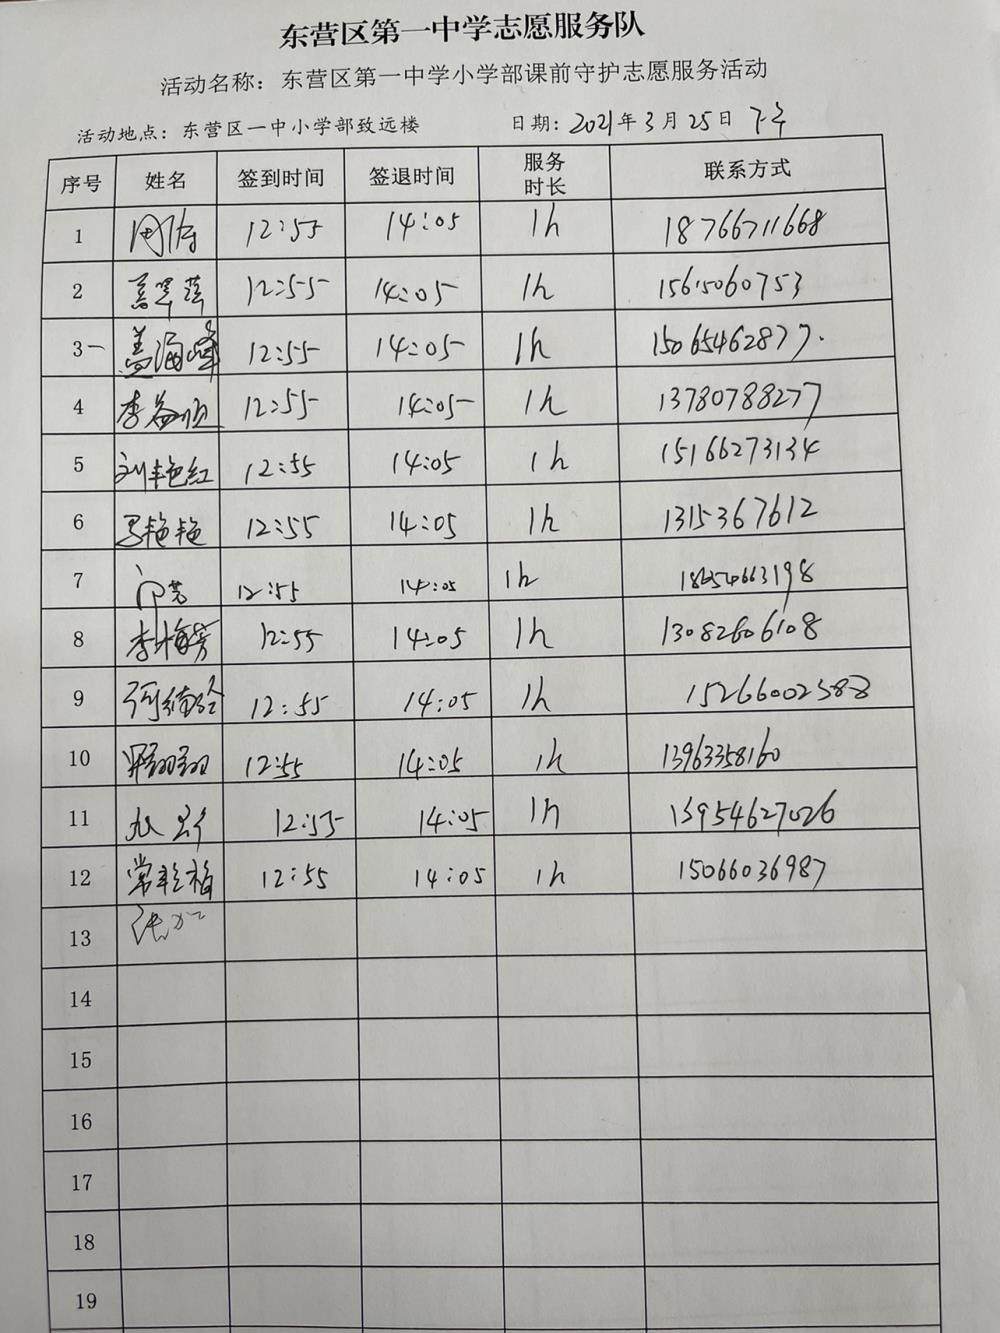 东营区第一中学志愿服务队
活动名称：东营区第一中学小学部课前守护志愿服务活动
活动地点：东营区一中小学部致远楼 日期：2021年3月25日 下午
序号 姓名 签到时间 签退时间 服务时长 联系方式
1 12:55 14:05 1h 18766711668
2 12:55 14:05 1h 15615060753
3 盖海峰 12:55 14:05 1h 15065462877.
4 12:55 14:05 1h 13780788277
5 刘艳红 12:55 14:05 1h 15166273134
6 艳艳 12:55 14:05 1h 1315367612
7 12:55 14:05 1h 18654663198
8 李梅芳 12:55 14:05 1h 13082606108
9 12:55 14:05 1h
10 翠翠 12:55 14:05 1h 13963358160
11 12:55 14:05 1h 13954627026
12 12:55 14:05 1h 15066036987
13
14
15
16
17
18
19